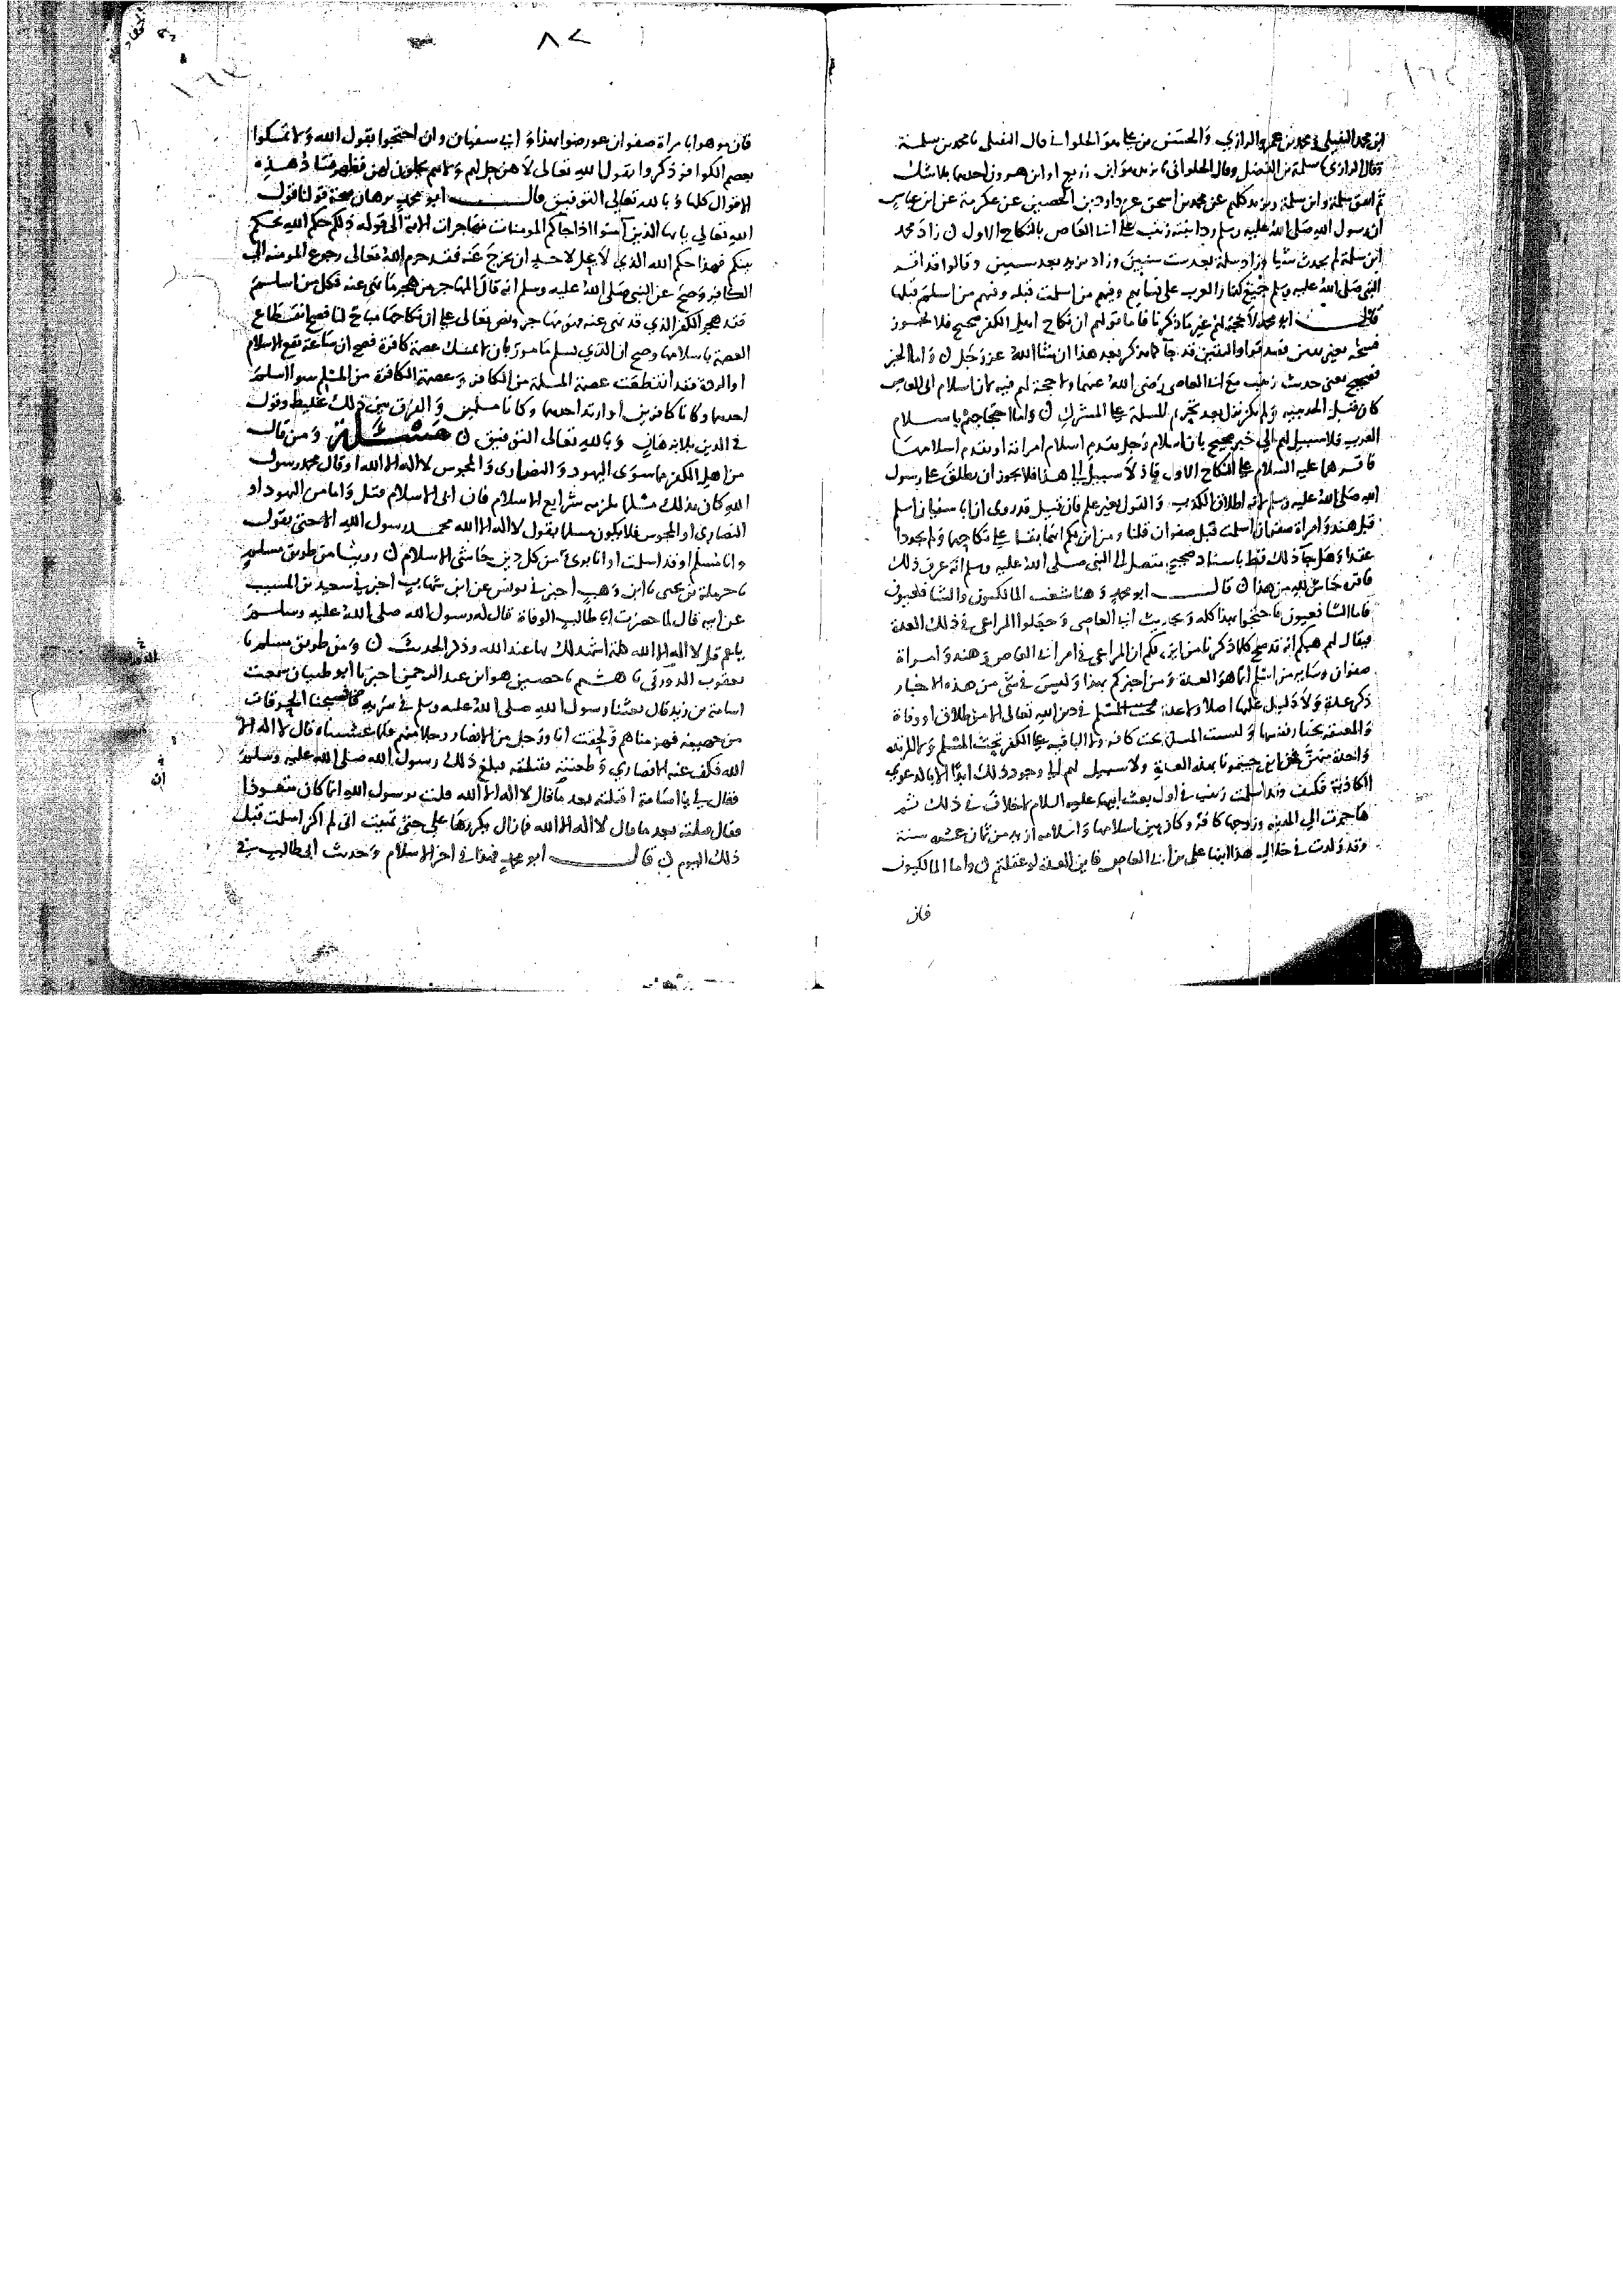 ابن محمد النفيلى ومحمد بن عمرو الرازي والحسن بن على هو الحلواني قال النفيلى نا محمد بن سلمة
وقال الرازي نا سلمة بن الفضل وقال الحلواني نا يزيد هو ابن زريع او ابن هرون احدهما بلا شك
ثم اتفق سلمة وابن سلمة ويزيد كلهم عن محمد بن اسحق عن داود بن الحصين عن عكرمة عن ابن عباس
ان رسول الله صلى الله عليه وسلم رد ابنته زينب على ابى العاص بالنكاح الاول ن زاد محمد
ابن سلمة لم يحدث شيا وزاد سلمة بعد ست سنين وزاد يزيد بعد سنتين وقالوا قد اقر
النبي صلى الله عليه وسلم جميع كفار العرب على نسايهم وفيهم من اسلمت قبله وفيهم من اسلم قبلها
قال ابو محمد لا حجة لهم غير ما ذكرنا فاما قولهم ان نكاح اهل الكفر صحيح فلا يجوز
فسخه بغير يقين فصدقوا واليقين قد جآ كما نذكر بعد هذا ان شا الله عز وجل ن واما الخبر
فصحيح يعنى حديث زينب مع ابى العاصى رضى الله عنهما ولا حجة لهم فيه لان اسلام ابى العاص
كان قبل الحديبية ولم يكن نزل بعد تحريم المسلمة على المشرك ن واما احتجاجهم باسلام
العرب فلا سبيل لهم الى خبر صحيح بان اسلام رجل تقدم اسلام امراته او تقدم اسلامها
فاقرهما عليه السلام على النكاح الاول فاذ لا سبيل الى هذا فلا يجوز ان يطلق على رسول
الله صلى الله عليه وسلم لانه اطلاق الكذب والقول بغير علم فان قيل قد روى ان ابا سفيان اسلم
قبل هند وامراة صفوان اسلمت قبل صفوان قلنا ومن اين لكم انهما بقيا على نكاحهما ولم يجددا
عقدا وهل جآ ذلك قط باسناد صحيح متصل الى النبي صلى الله عليه وسلم انه عرف ذلك
فاقره حاش لله من هذا ن قال ابو محمد وهنا شغب المالكيون والشافعيون
فاما الشافعيون فاحتجوا بهذا كله وبحديث ابى العاصى وجعلوا المراعى فى ذلك العدة
فيقال لهم هبكم انه قد صح كلما ذكرنا من اين لكم ان المراعى فى امر ابى العاص وهند وامراة
صفوان وساير من اسلم انما هو العدة ومن اخبركم بهذا وليس فى شى من هذه الاخبار
ذكر عدة ولا دليل عليها اصلا ولا عدة تحت المسلم فى دين الله تعالى الا من طلاق او وفاة
والمعتقة تختار نفسها وليست المسلمة تحت كافر ولا الباقية على الكفر تحت المسلم ولا المرتدة
واحدة منهن فمن اين جيتمونا بهذه العدة ولا سبيل لهم الى وجود ذلك ابدا الا بالدعوى
الكاذبة فكيف وقد اسلمت زينب فى اول بعث ابيها عليه السلام لا خلاف فى ذلك ثم
هاجرت الى المدينة وزوجها كافر وكان بين اسلامها واسلامه ازيد من ثمان عشرة سنة
وقد ولدت فى خلال هذا ابنها على بن ابى العاص فاين العدة لو عقلتم ن واما المالكيون
فان
٨٢
فان موهوا بامراة صفوان عورضوا بهند وابى سفيان وان احتجوا بقول الله ولا تمسكوا
بعصم الكوافر ذكروا بقول الله تعالى لا هن حل لهم ولا هم يحلون لهن فظهر فساد هذه
الاقوال كلها وبالله تعالى التوفيق قال ابو محمد برهان صحة قولنا قول
الله تعالى يا ايها الذين آمنوا اذا جاكم المومنات مهاجرات الاية الى قوله ذلكم حكم الله يحكم
بينكم فهذا حكم الله الذي لا يحل لاحد ان يخرج عنه فقد حرم الله تعالى رجوع المومنة الى
الكافر وصح عن النبي صلى الله عليه وسلم انه قال المهاجر من هجر ما نهى عنه فكل من اسلم
فقد هجر الكفر الذي قد نهى عنه فهو مهاجر ونص تعالى على ان نكاحها مباح لنا فصح انقطاع
العصمة باسلامها وصح ان الذي يسلم مامور بان لا يمسك عصمة كافرة فصح ان ساعة يقع الاسلام
او الردة فقد انقطعت عصمة المسلمة من الكافر وعصمة الكافرة من المسلم سوا اسلم
احدهما وكانا كافرين او ارتد احدهما وكانا مسلمين والفرق بين ذلك تخليط وقول
فى الدين بلا برهان وبالله تعالى التوفيق ن مسئلة ومن قال
من اهل الكفر ما سوى اليهود والنصارى والمجوس لا اله الا الله او قال محمد رسول
الله كان بذلك مسلما تلزمه شرايع الاسلام فان ابى الاسلام قتل واما من اليهود او
النصارى او المجوس فلا يكون مسلما بقول لا اله الا الله محمد رسول الله الا حتى يقول
وانا مسلم او قد اسلمت او انا برئ من كل دين حاشى الاسلام ن روينا من طريق مسلم
نا حرملة بن يحيى نا ابن وهب اخبرنى يونس عن ابن شهاب اخبرنى سعيد بن المسيب
عن ابيه قال لما حضرت ابا طالب الوفاة قال له رسول الله صلى الله عليه وسلم
يا عم قل لا اله الا الله كلمة اشهد لك بها عند الله وذكر الحديث ن ومن طريق مسلم نا
يعقوب الدورقى نا هشيم نا حصين هو ابن عبد الرحمن اخبرنا ابو ظبيان سمعت
اسامة بن زيد قال بعثنا رسول الله صلى الله عليه وسلم فى سرية فصبحنا الحرقات
من جهينة فهزمناهم ولحقت انا ورجل من الانصار رجلا منهم فلما غشيناه قال لا اله الا
الله فكف عنه الانصاري وطعنته فقتلته فبلغ ذلك رسول الله صلى الله عليه وسلم
فقال لى يا اسامة اقتلته بعد ما قال لا اله الا الله قلت يرسول الله انما كان متعوذا
فقال اقتلته بعد ما قال لا اله الا الله فما زال يكررها على حتى تمنيت انى لم اكن اسلمت قبل
ذلك اليوم ن قال ابو محمد فهذا فى اخر الاسلام وحديث ابى طالب فى